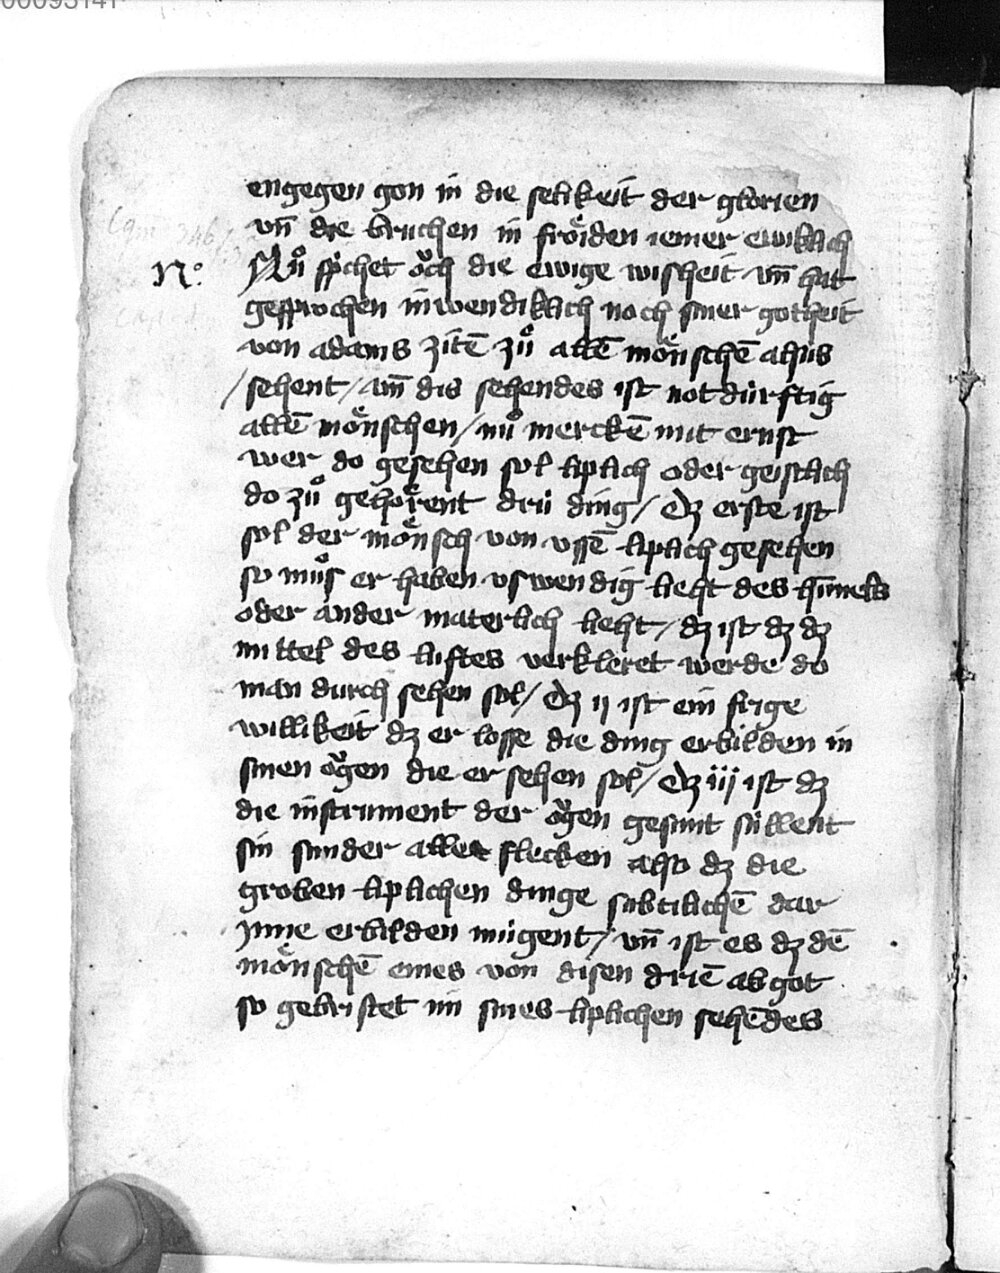 00093141
engegen gon in die selikeit der glorien
vn̄ die bruchen in froͤiden iemer ewiklich
N° Nuͦ sp̄chet oͮch die ewige wisheit vn̄ hat
gesprochen inwendiklich noch siner gotheit
von adams zitē zuͦ allē moͤnschē alsus
/ sehent / wan̄ dis sehendes ist notdürftig
allē moͤnschen / nuͦ merckē mit ernst
wer do gesehen sol liplich oder geistlich
do zuͦ gehoͤrent drü ding / dz erste ist
sol der moͤnsch von vssē liplich gesehen
so muͦs er haben vswendig lieht des him̄els
oder ander materlich lieht / dz ist dz dz
mittel des luftes verkleret werde do
man durch sehen sol / dz ij ist ein frige
willikeit dz er losse die ding erbilden in
sinen oͮgen die er sehen sol / dz iij ist dz
die instrument der oͮgen gesunt süllent
sin sunder alle flecken also dz die
groben liplichen dinge subtilichē dar
jnne erbilden mügent / vn̄ ist es dz dē
moͤnschē eines von disen driē ab got
so gebristet im sines liplichen sehēdes